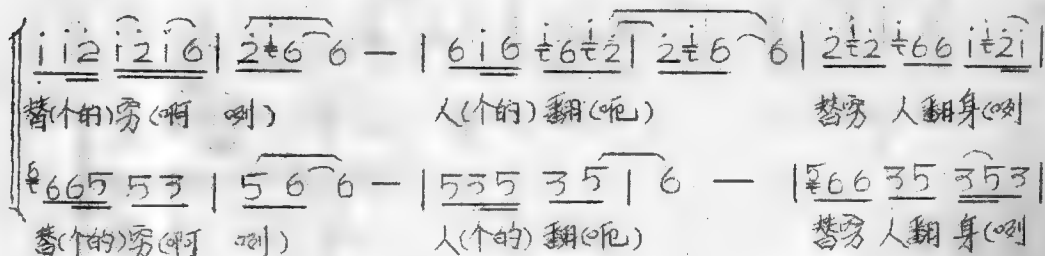 i i 2 i 2 i 6 | 2 i 6 6 — | 6 i 6 i 6 i 2 | 2 i 6 6 | 2 i 2 i 6 6 i i 2 i |
替(个的)穷(啊 咧) 人(个的)翻(呃) 替穷 人翻身(咧
5 6 6 5 5 3 | 5 6 6 — | 5 3 5 3 5 | 6 — | 5 6 6 3 5 3 5 3 |
替(个的)穷(啊 咧) 人(个的)翻(呃) 替穷 人翻 身(咧